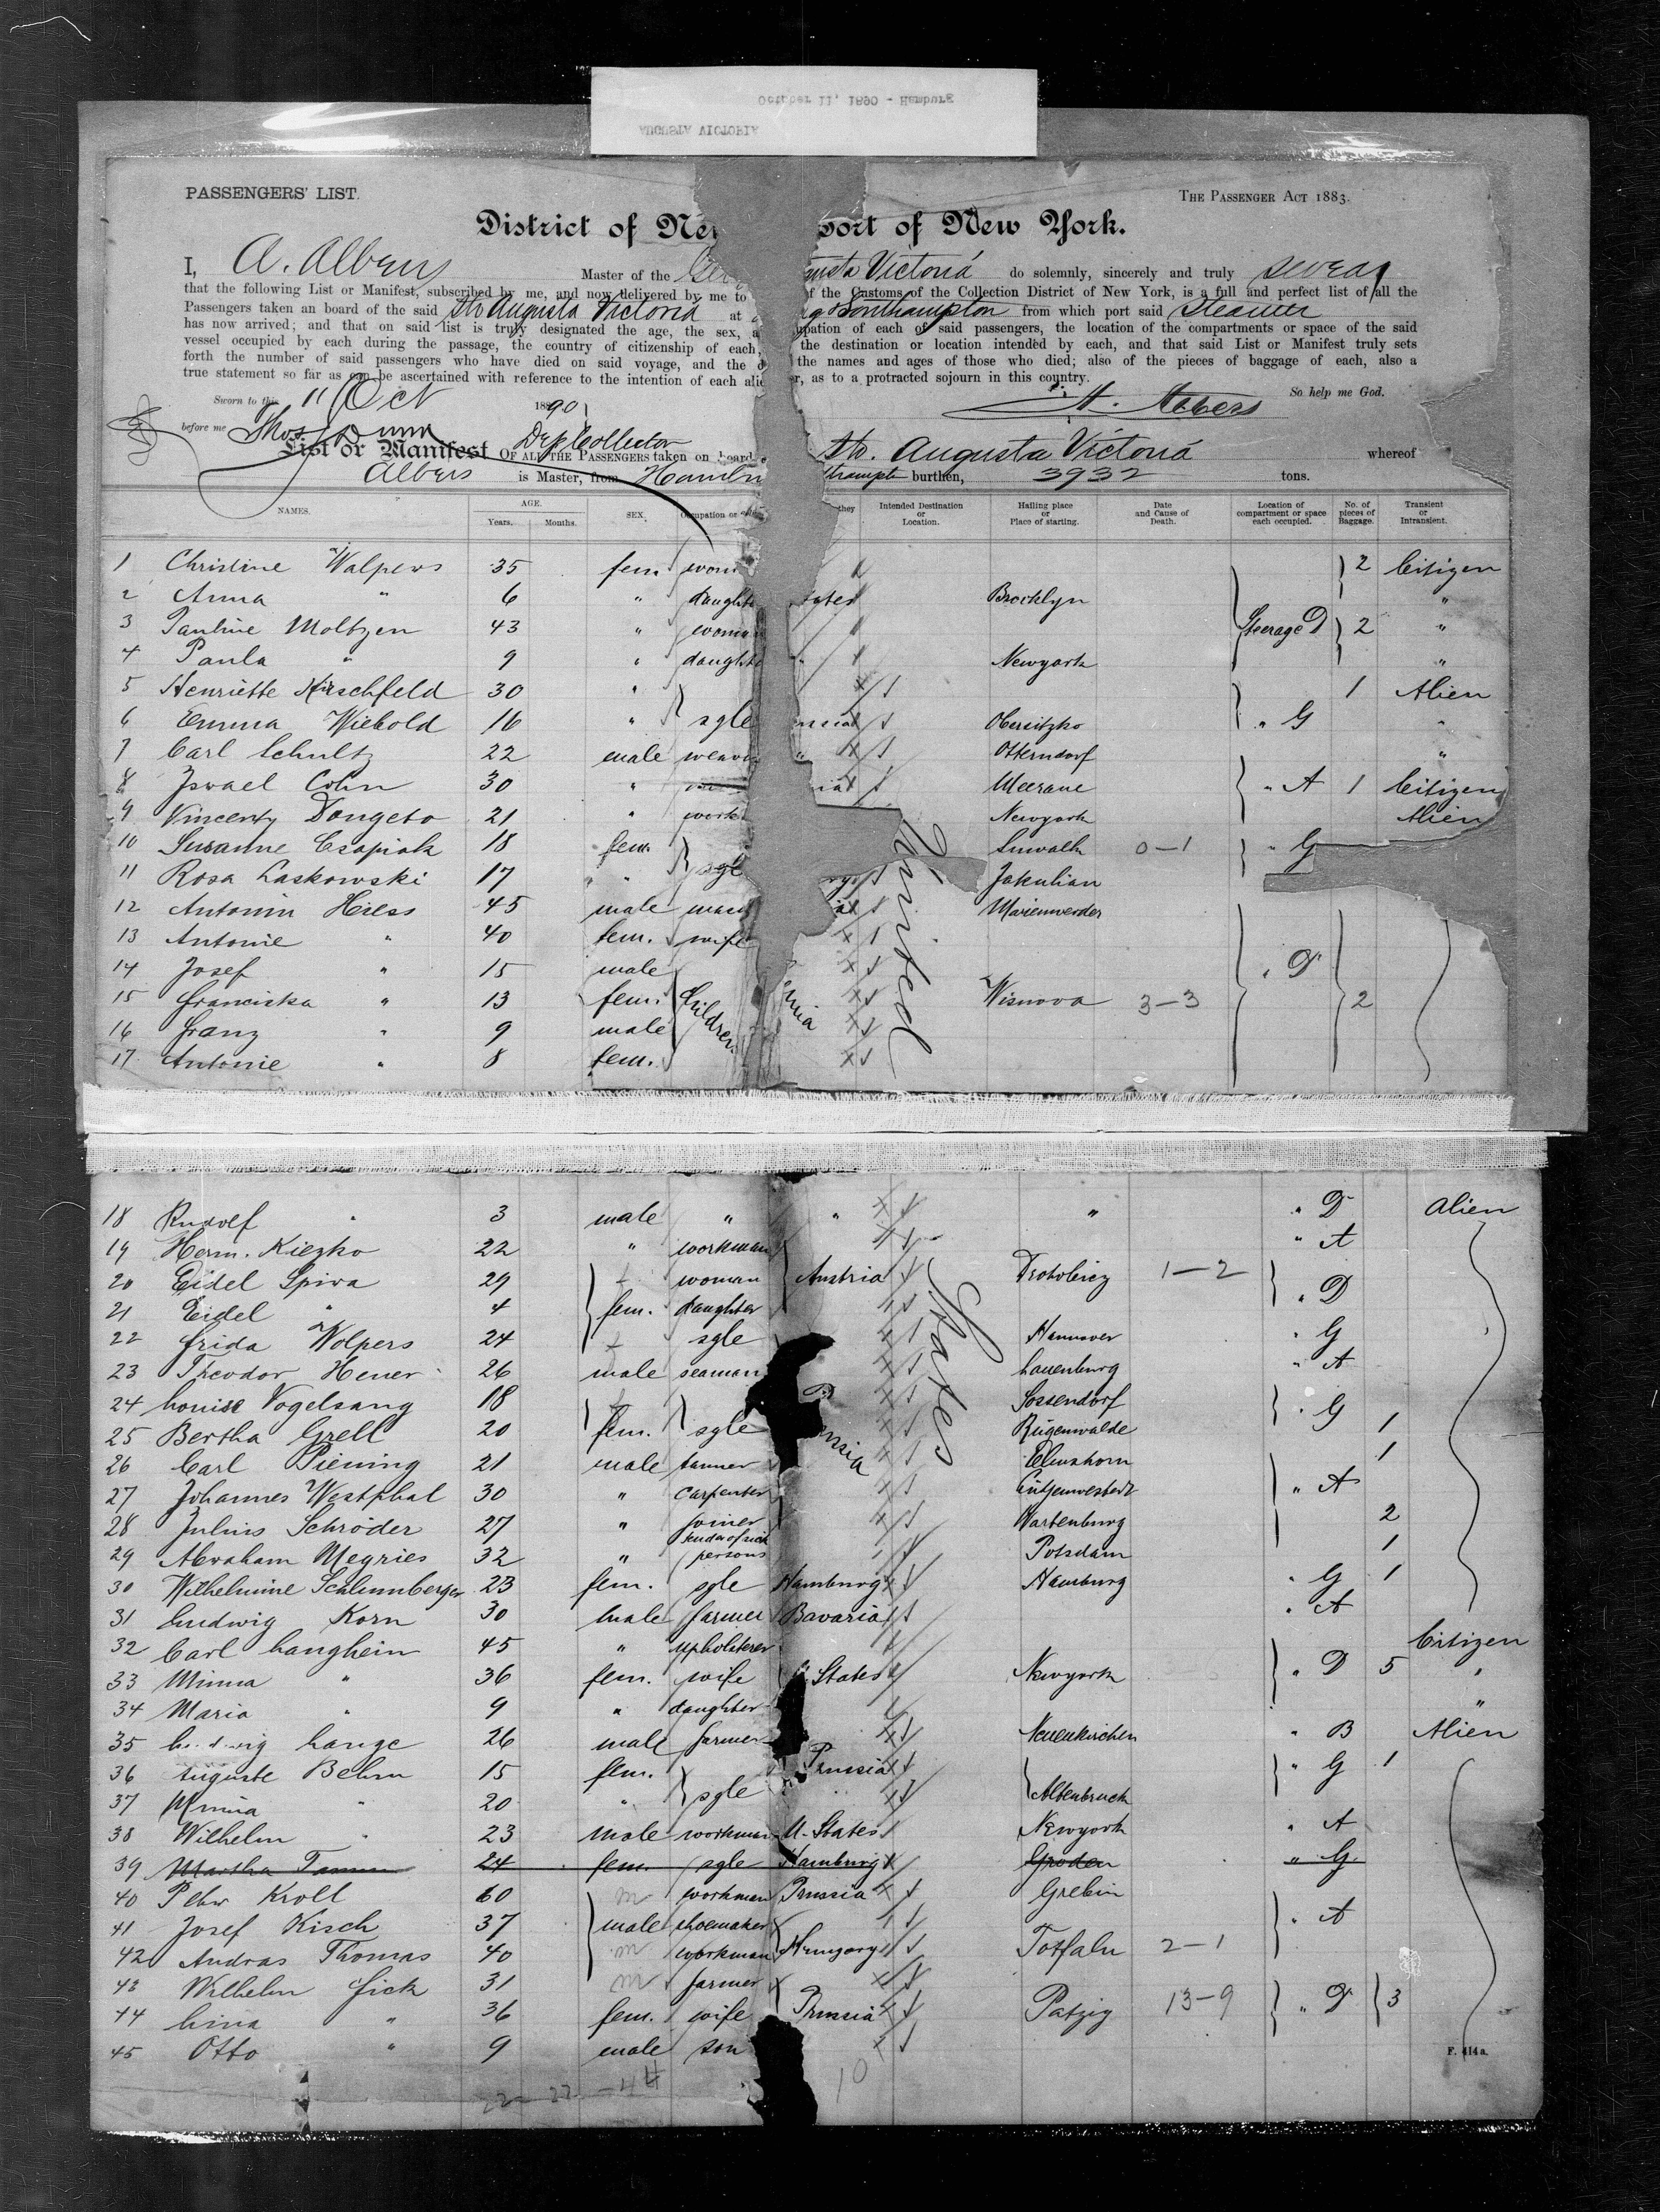 October 11, 1890 - Hamburg
AUGUSTA VICTORIA
PASSENGERS' LIST.
THE PASSENGER ACT 1883.
District of Ne port of New York.
I, A. Albers Master of the usta Victoria do solemnly, sincerely and truly swear
that the following List or Manifest, subscribed by me, and now delivered by me to of the Customs of the Collection District of New York, is a full and perfect list of all the
Passengers taken on board of the said Str Augusta Victoria at Southampton from which port said Steamer
has now arrived; and that on said list is truly designated the age, the sex, upation of each of said passengers, the location of the compartments or space of the said
vessel occupied by each during the passage, the country of citizenship of each, the destination or location intended by each, and that said List or Manifest truly sets
forth the number of said passengers who have died on said voyage, and the the names and ages of those who died; also of the pieces of baggage of each, also a
true statement so far as can be ascertained with reference to the intention of each alie r, as to a protracted sojourn in this country.
Sworn to this 11 Oct 1890 So help me God.
before me Thos Dunn A. Albers
Dep Collector
List or Manifest OF ALL THE PASSENGERS taken on board Str. Augusta Victoria whereof
Albers is Master, from Hambu burthen, 3932 tons.
NAMES. AGE. Years. Months. SEX. Occupation or they Intended Destination or Location. Hailing place or Place of starting. Date and Cause of Death. Location of compartment or space each occupied. No. of pieces of Baggage. Transient or Intransient.
1 Christine Walpers 35 fem. wom 2 Citizen
2 Anna " 6 " daughte tates Brooklyn "
3 Pauline Moltzen 43 " woma Steerage D 2 "
4 Paula " 9 " daughte " Newyork "
5 Henriette Hirschfeld 30 " 1 Alien
6 Emma Wiebold 16 " sgle ussia Obersitzko " G "
7 Carl Schultz 22 male weav " Otterndorf "
8 Israel Cohn 30 " Meerane " A 1 Citizen
9 Vincenty Dongeto 21 " work Newyork Alien
10 Susanne Czapiak 18 fem. Suwalk 0-1 " G
11 Rosa Laskowski 17 " sgl Jakubian
12 Antonin Hiess 45 male Marienwerder
13 Antonie " 40 fem. wife
14 Josef " 15 male " D
15 Franciska " 13 fem. Children Wisnova 3-3 2
16 Franz " 9 male
17 Antonie " 8 fem.
United
18 Rudolf " 3 male " " " " D Alien
19 Herm. Kiezko 22 " workman " A
20 Eidel Spira 29 f woman Austria Drohobicz 1-2
21 Eidel " 4 fem. daughter " D
22 Frida Wolpers 24 f sgle Hannover " G
23 Theodor Hener 26 male seaman Lauenburg " A
24 Louise Vogelsang 18 f Sossendorf " G
25 Bertha Grell 20 fem. sgle Rügenwalde 1
26 Carl Piening 21 male tanner Elmshorn 1
27 Johannes Westphal 30 " carpenter " A
28 Julius Schröder 27 " joiner Wartenburg 2
29 Abraham Megries 32 " persons Potsdam 1
30 Wilhelmine Schlumberger 23 fem. sgle Hamburg Hamburg " G 1
31 Ludwig Korn 30 male farmer Bavaria " A
32 Carl Langhein 45 " upholsterer Citizen
33 Minna " 36 fem. wife States Newyork " D 5 "
34 Maria " 9 " daughter "
35 Lange 26 male farmer Neuenkirchen " B Alien
36 Auguste Behm 15 fem. Prussia " G 1
37 Minna " 20 " sgle Altenbruch
38 Wilhelm " 23 male workman U. States Newyork " A
39 Martha Tamm 24 fem. sgle Hamburg Groden " G.
40 Peter Kroll 60 m workman Prussia Grebin
41 Josef Kisch 37 male shoemaker " A
42 Andras Thomas 40 m workman Hungary Totfalu 2-1
43 Wilhelm Fick 31 m farmer
44 Lina " 36 fem. wife Prussia Patzig 13-9 " D 3
45 Otto " 9 male son
States
F. 414a.
22 - 22 - 44 10